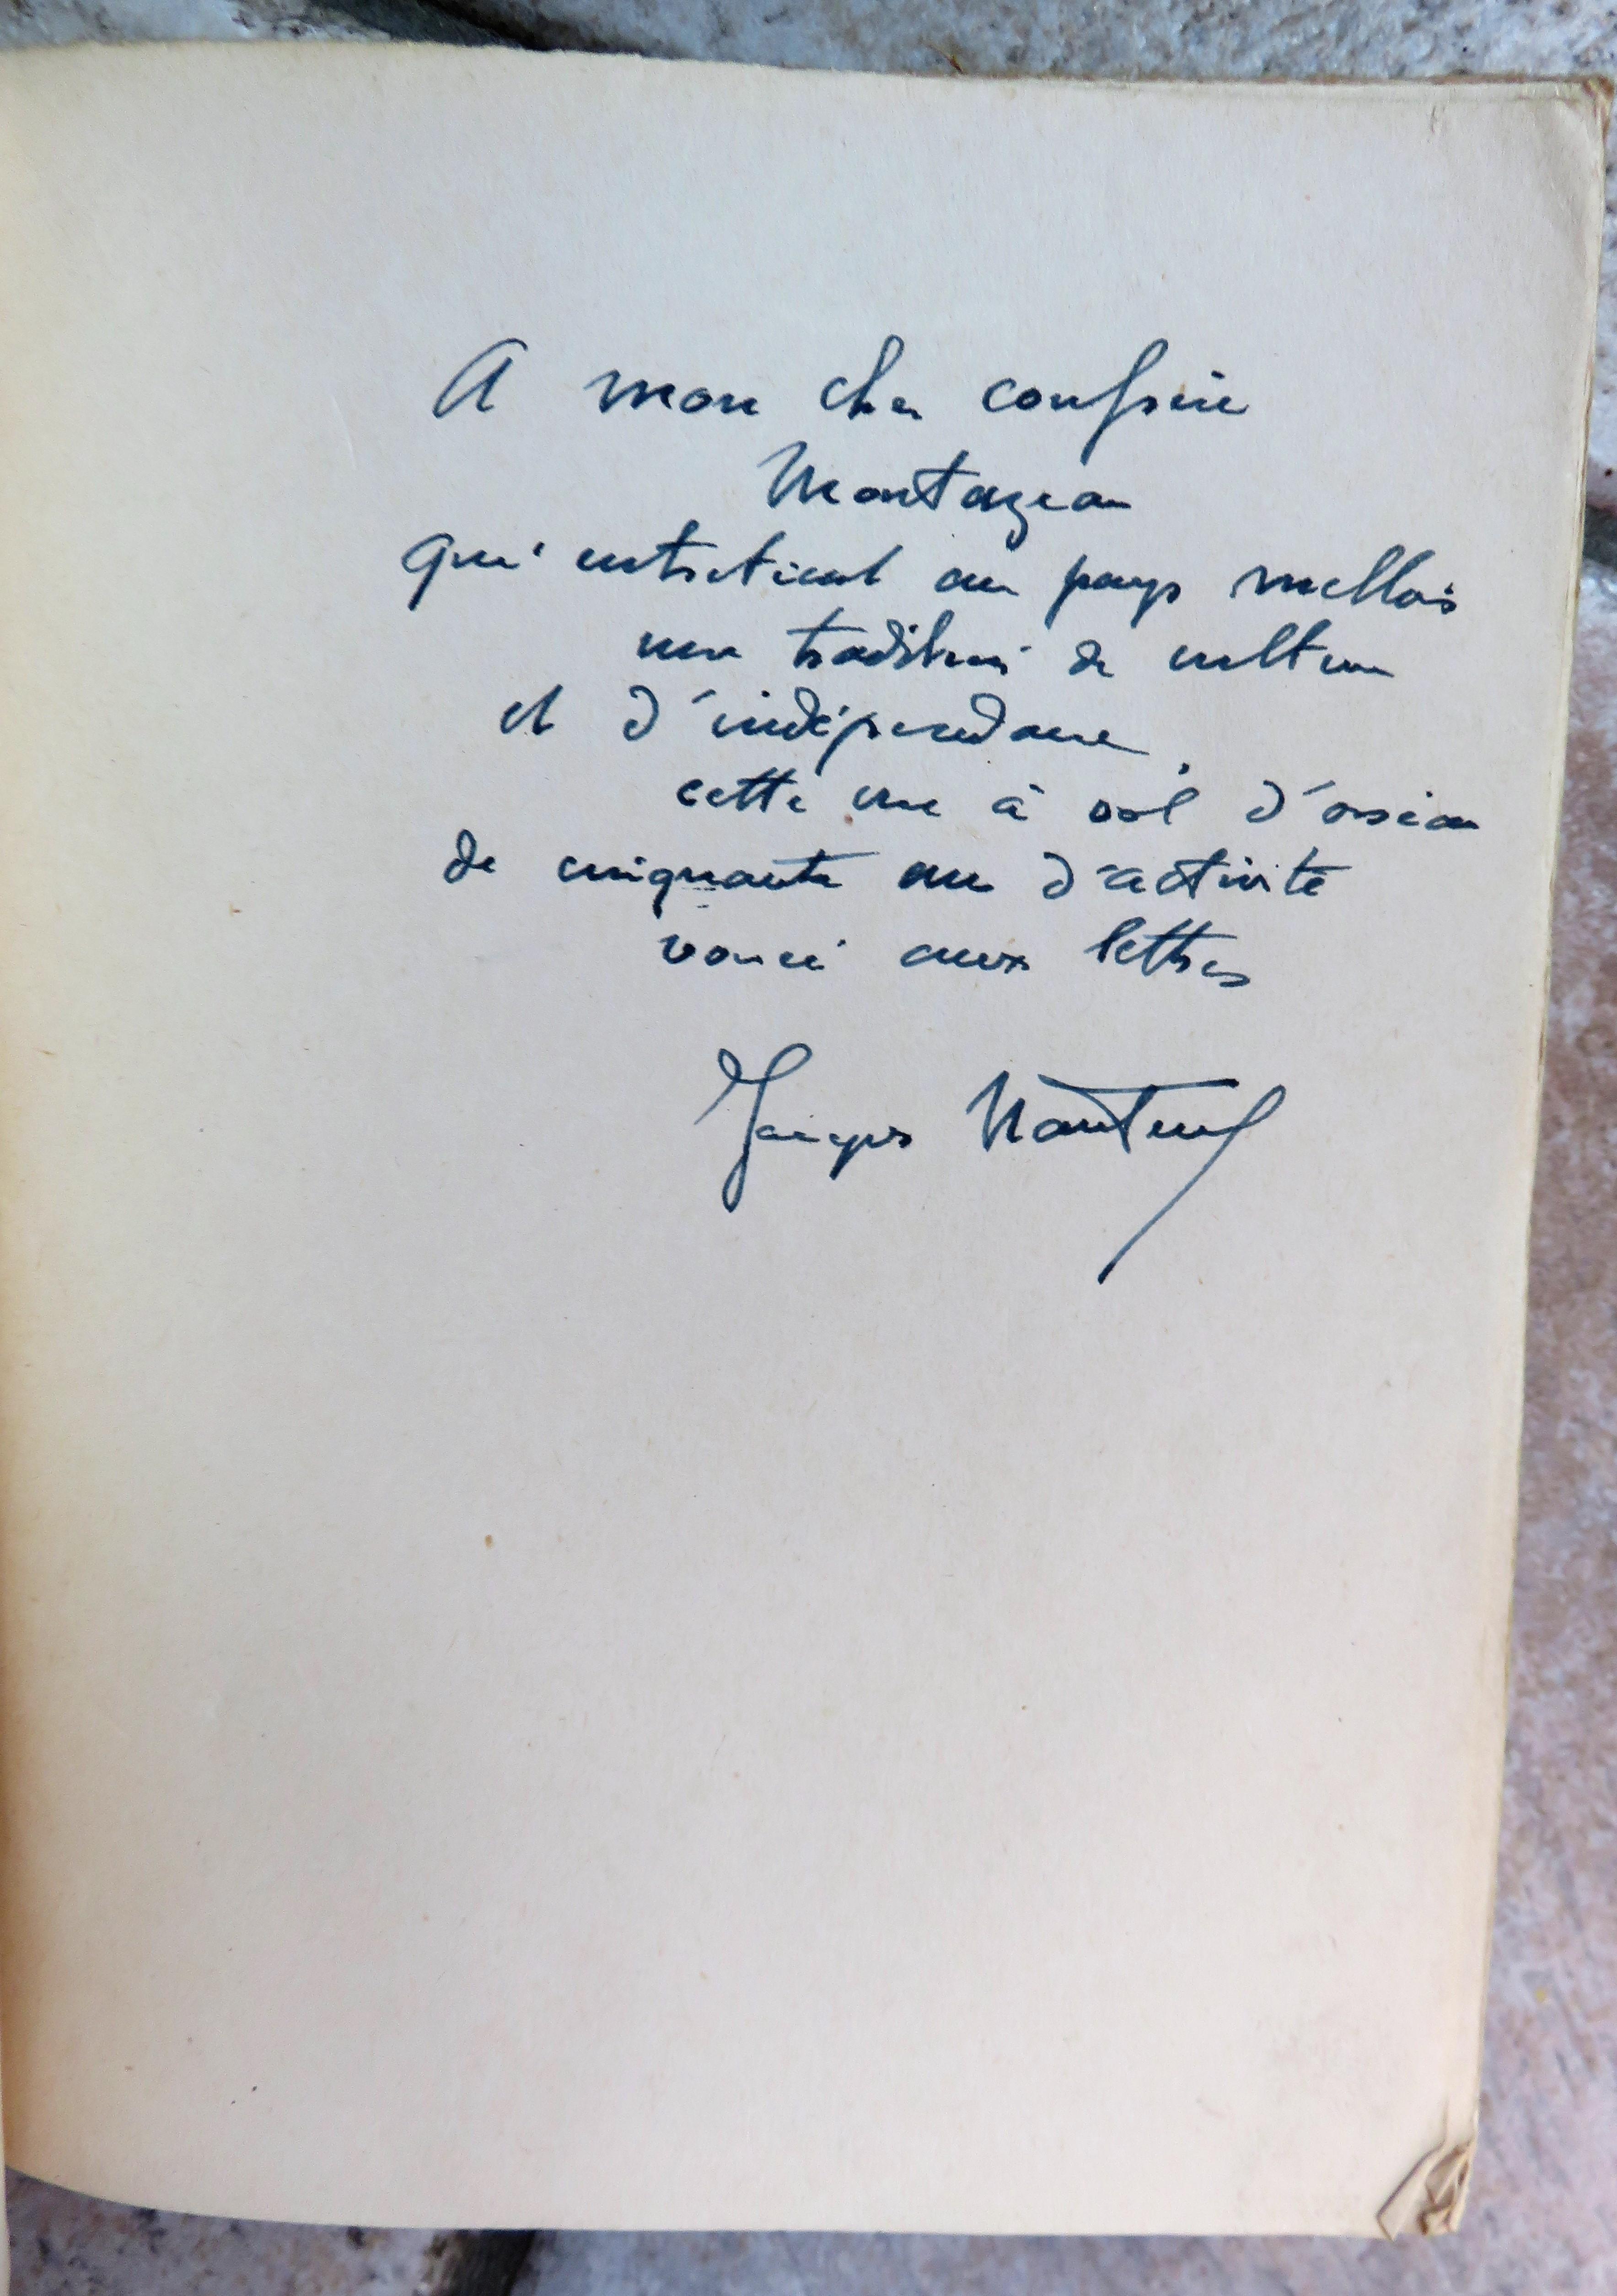 A mon cher confrère
Montazeau
qui entretient au pays mellois
une tradition de culture
et d'indépendance,
cette vue à vol d'oiseau
de cinquante ans d'activité
vouée aux lettres
Jacques Nanteuil